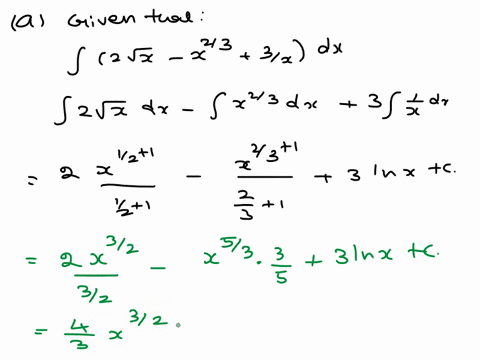 (a) Given that:
∫ (2√x − x^{2/3} + 3/x) dx
∫ 2√x dx − ∫ x^{2/3} dx + 3∫ 1/x dx
= 2 x^{1/2+1}/(1/2+1) − x^{2/3+1}/(2/3+1) + 3 ln x + c.
= 2 x^{3/2}/(3/2) − x^{5/3} · 3/5 + 3 ln x + c.
= 4/3 x^{3/2}